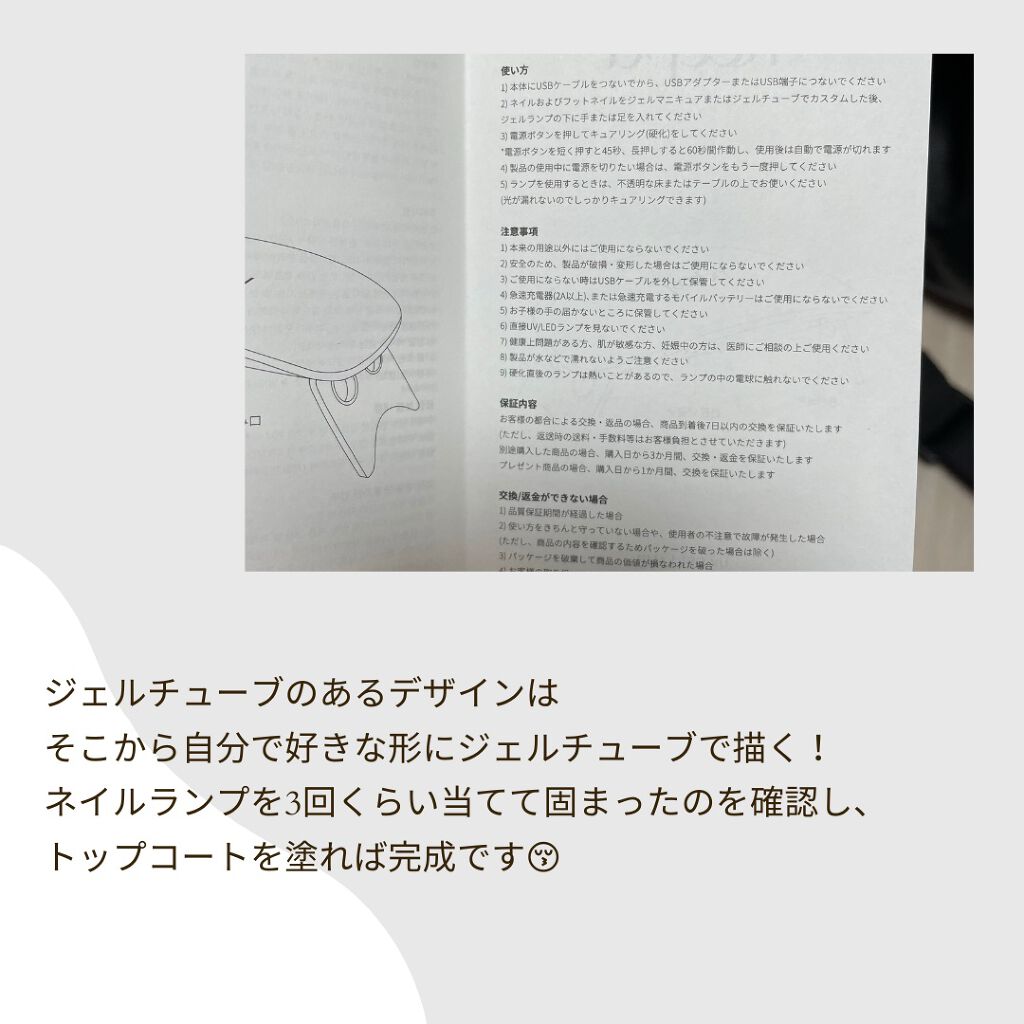 使い方
1) 本体にUSBケーブルをつないでから、USBアダプターまたはUSB端子につないでください
2) ネイルおよびフットネイルをジェルマニキュアまたはジェルチューブでカスタムした後、
ジェルランプの下に手または足を入れてください
3) 電源ボタンを押してキュアリング(硬化)をしてください
*電源ボタンを短く押すと45秒、長押しすると60秒間作動し、使用後は自動で電源が切れます
4) 製品の使用中に電源を切りたい場合は、電源ボタンをもう一度押してください
5) ランプを使用するときは、不透明な床またはテーブルの上でお使いください
(光が漏れないのでしっかりキュアリングできます)
注意事項
1) 本来の用途以外にはご使用にならないでください
2) 安全のため、製品が破損・変形した場合はご使用にならないでください
3) ご使用にならない時はUSBケーブルを外して保管してください
4) 急速充電器(2A以上)、または急速充電するモバイルバッテリーはご使用にならないでください
5) お子様の手の届かないところに保管してください
6) 直接UV/LEDランプを見ないでください
7) 健康上問題がある方、肌が敏感な方、妊娠中の方は、医師にご相談の上ご使用ください
8) 製品が水などで濡れないようご注意ください
9) 硬化直後のランプは熱いことがあるので、ランプの中の電球に触れないでください
保証内容
お客様の都合による交換・返品の場合、商品到着後7日以内の交換を保証いたします
(ただし、返送時の送料・手数料等はお客様負担とさせていただきます)
別途購入した商品の場合、購入日から3か月間、交換・返金を保証いたします
プレゼント商品の場合、購入日から1か月間、交換を保証いたします
交換/返金ができない場合
1) 品質保証期間が経過した場合
2) 使い方をきちんと守っていない場合や、使用者の不注意で故障が発生した場合
(ただし、商品の内容を確認するためパッケージを破った場合は除く)
3) パッケージを破棄して商品の価値が損なわれた場合
ジェルチューブのあるデザインは
そこから自分で好きな形にジェルチューブで描く！
ネイルランプを3回くらい当てて固まったのを確認し、
トップコートを塗れば完成です😚